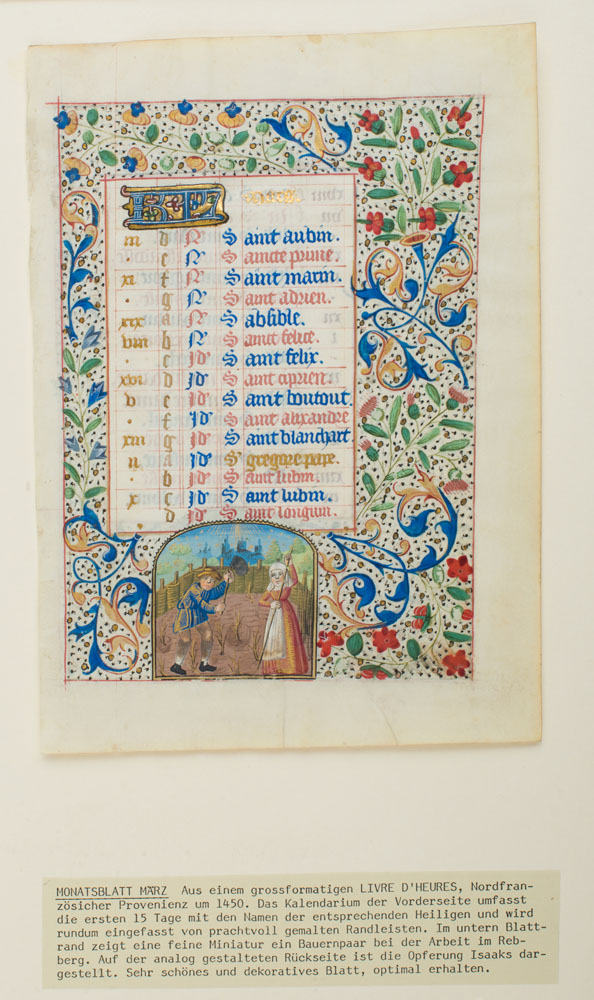 KL
iii d N Saint aubin.
. e N Saincte prime.
xi f N Saint marin.
. g N Saint adrien.
xix a N Sabsible.
viii b N Saint felice.
. c Id' Saint felix.
xvi d Id' Saint ciprien.
v e Id' Saint boutout.
. f Id' Saint alixandre
xiii g Id' Saint blanchart.
ii a Id' S' gregore pape.
. b Id' Saint lubin.
x c Id' Saint lubin.
. d Saint longuin.
MONATSBLATT MÄRZ Aus einem grossformatigen LIVRE D'HEURES, Nordfran-
zösicher Provenienz um 1450. Das Kalendarium der Vorderseite umfasst
die ersten 15 Tage mit den Namen der entsprechenden Heiligen und wird
rundum eingefasst von prachtvoll gemalten Randleisten. Im untern Blatt-
rand zeigt eine feine Miniatur ein Bauernpaar bei der Arbeit im Reb-
berg. Auf der analog gestalteten Rückseite ist die Opferung Isaaks dar-
gestellt. Sehr schönes und dekoratives Blatt, optimal erhalten.